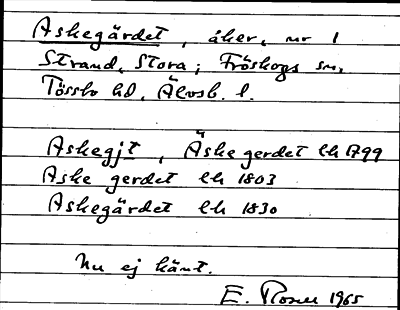 Askegärdet, åker, nr 1
Strand, Stora; Fröskogs sn,
Tössbo hd, Älvsb. l.
Askegjt, Äske gerdet lh 1799
Aske gerdet lh 1803
Askegärdet lh 1830
Nu ej känt.
E. 1965